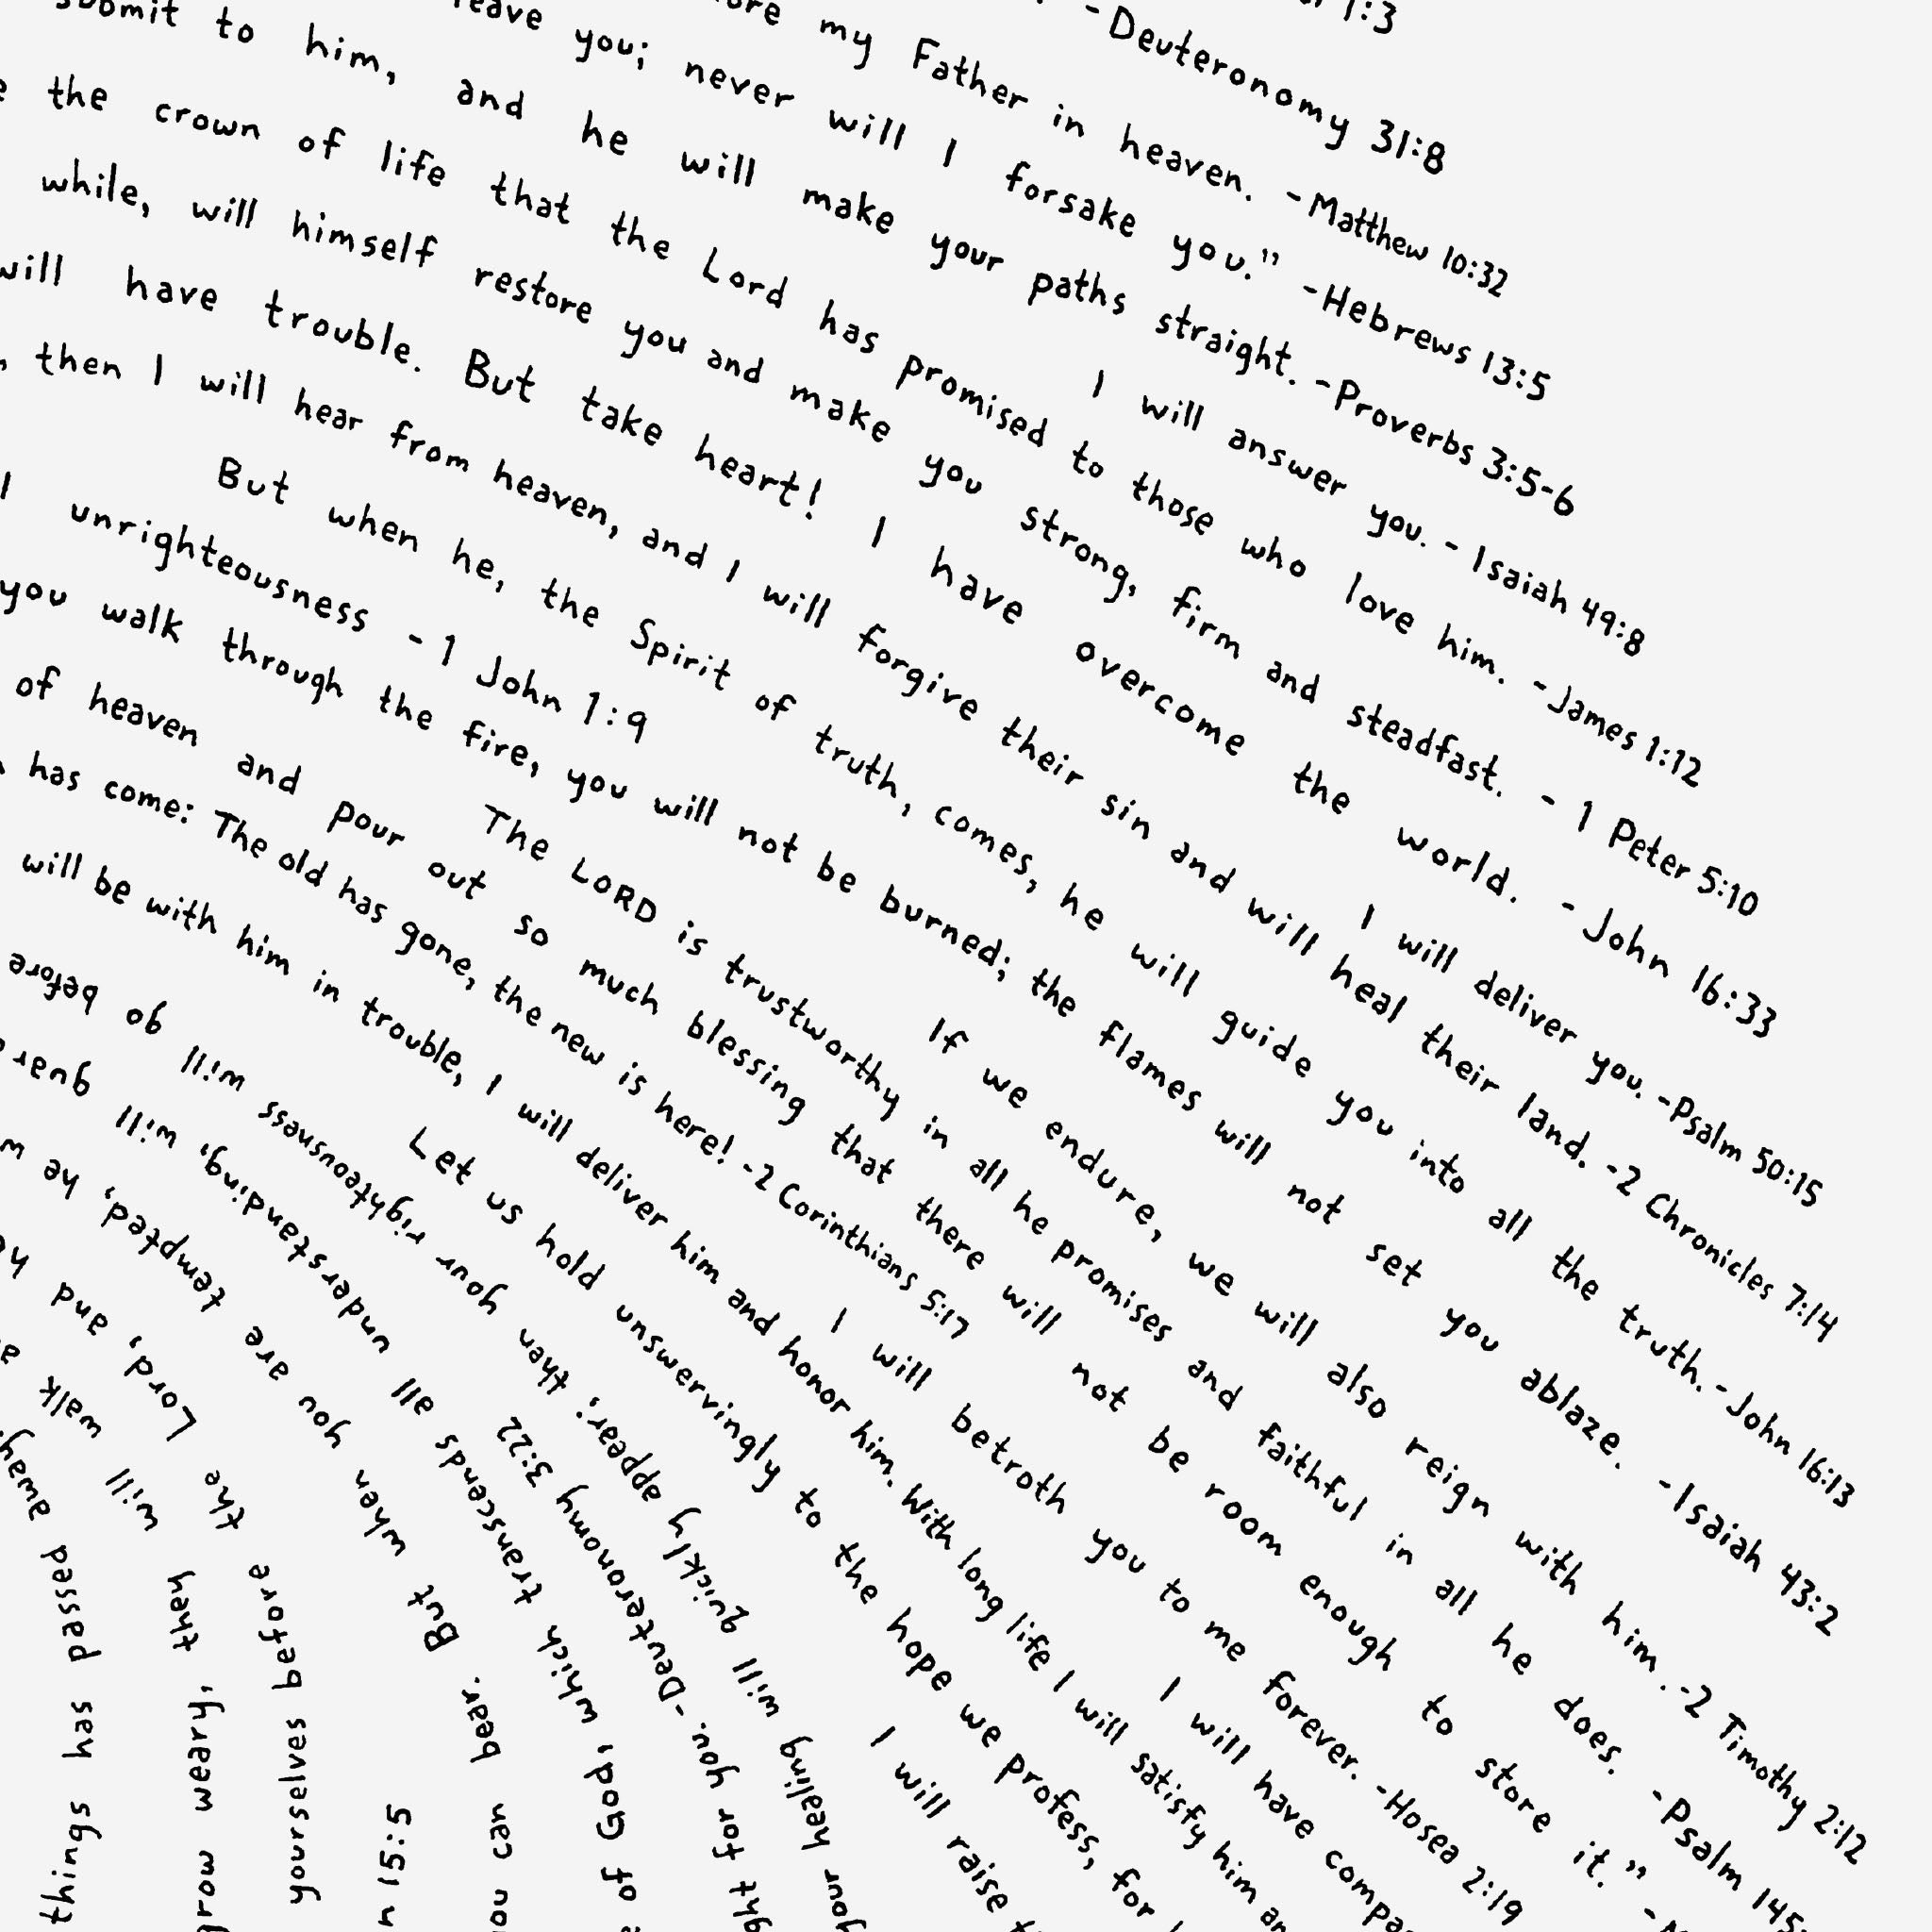 1:3
-Deuteronomy 31:8
my Father in heaven. -Matthew 10:32
you; never will I forsake you." -Hebrews 13:5
submit to him, and he will make your paths straight. -Proverbs 3:5-6
I will answer you. - Isaiah 49:8
the crown of life that the Lord has promised to those who love him. -James 1:12
while, will himself restore you and make you strong, firm and steadfast. - 1 Peter 5:10
will have trouble. But take heart! I have overcome the world. - John 16:33
I will deliver you. -Psalm 50:15
then I will hear from heaven, and I will forgive their sin and will heal their land. -2 Chronicles 7:14
But when he, the Spirit of truth, comes, he will guide you into all the truth. - John 16:13
unrighteousness - 1 John 1:9
you walk through the fire, you will not be burned; the flames will not set you ablaze. -Isaiah 43:2
If we endure, we will also reign with him. -2 Timothy 2:12
The LORD is trustworthy in all he promises and faithful in all he does. -Psalm 145:
of heaven and pour out so much blessing that there will not be room enough to store it." -
has come: The old has gone, the new is here! -2 Corinthians 5:17
I will betroth you to me forever. -Hosea 2:19
I will have
will be with him in trouble, I will deliver him and honor him. With long life I will satisfy him
Let us hold unswervingly to the hope we profess, for
I will raise
your healing will quickly appear; then your righteousness will go before
for you. -Deuteronomy 3:22
of God, which transcends all understanding, will
you can bear. But when you are tempted, he
15:5
yourselves before the Lord, and
grow weary, they will walk
things has passed away